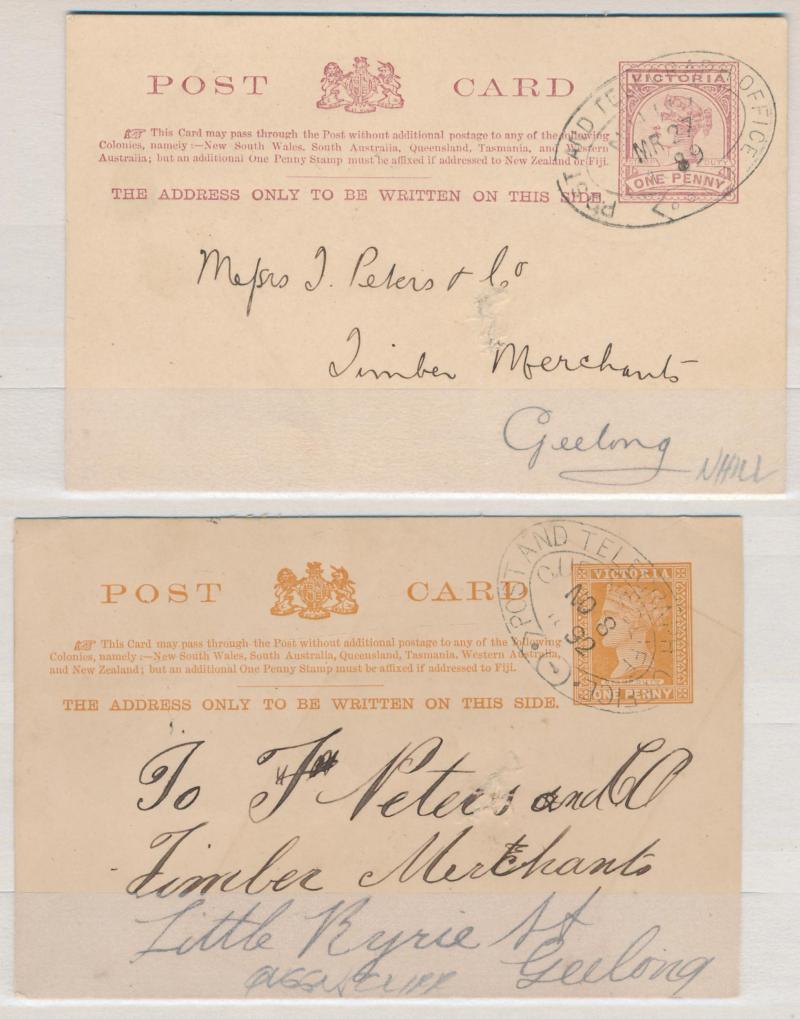 POST CARD
☞ This Card may pass through the Post without additional postage to any of the following
Colonies, namely:—New South Wales, South Australia, Queensland, Tasmania, and Western
Australia; but an additional One Penny Stamp must be affixed if addressed to New Zealand or Fiji.
THE ADDRESS ONLY TO BE WRITTEN ON THIS SIDE.
VICTORIA
ONE PENNY
POST AND TELEGRAPH OFFICE
MR 24
89
Messrs J. Peters & Co
Timber Merchants
Geelong
NHILL
POST CARD
☞ This Card may pass through the Post without additional postage to any of the following
Colonies, namely:—New South Wales, South Australia, Queensland, Tasmania, Western Australia,
and New Zealand; but an additional One Penny Stamp must be affixed if addressed to Fiji.
THE ADDRESS ONLY TO BE WRITTEN ON THIS SIDE.
VICTORIA
ONE PENNY
POST AND TELEGRAPH OFFICE
NO 8
92
To Peters and Co
Timber Merchants
Little Ryrie St
Geelong